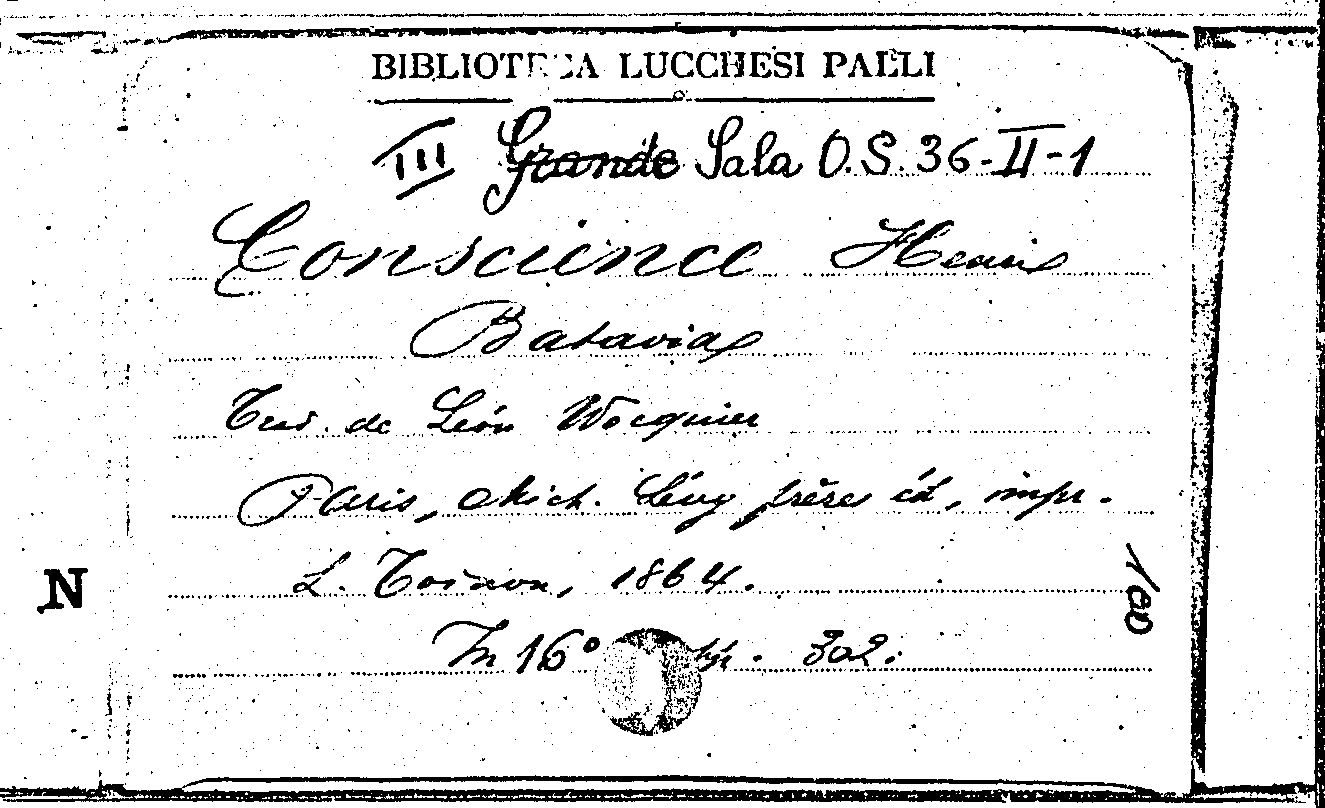 BIBLIOTECA LUCCHESI PALLI
III Grande Sala O.S. 36-II-1
Conscience Henri
Batavia
Trad. de Léon Wocquier
Paris, Mich. Lévy frères éd, impr.
L. Toinon, 1864.
In 16° pp. 302.
N
1/00